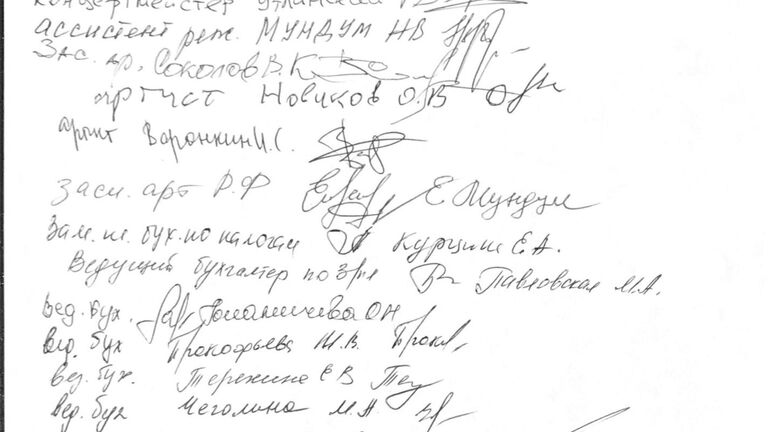 концертмейстер
ассистент реж. МУНДУМ НВ
Зас. ар. Соколов В.К.
артист Новиков О.В
артист Воронкин И.С.
засл. арт Р.Ф Е Мундум
Зам. гл. бух. по налогам Е.А.
Ведущий бухгалтер по З/пл Павловская М.А.
Вед. бух. ОН
вед. бух Прокофьева М.В. Прокл
вед. бух. Терехина ЕВ Тер
вед. бух Чеголина М.А